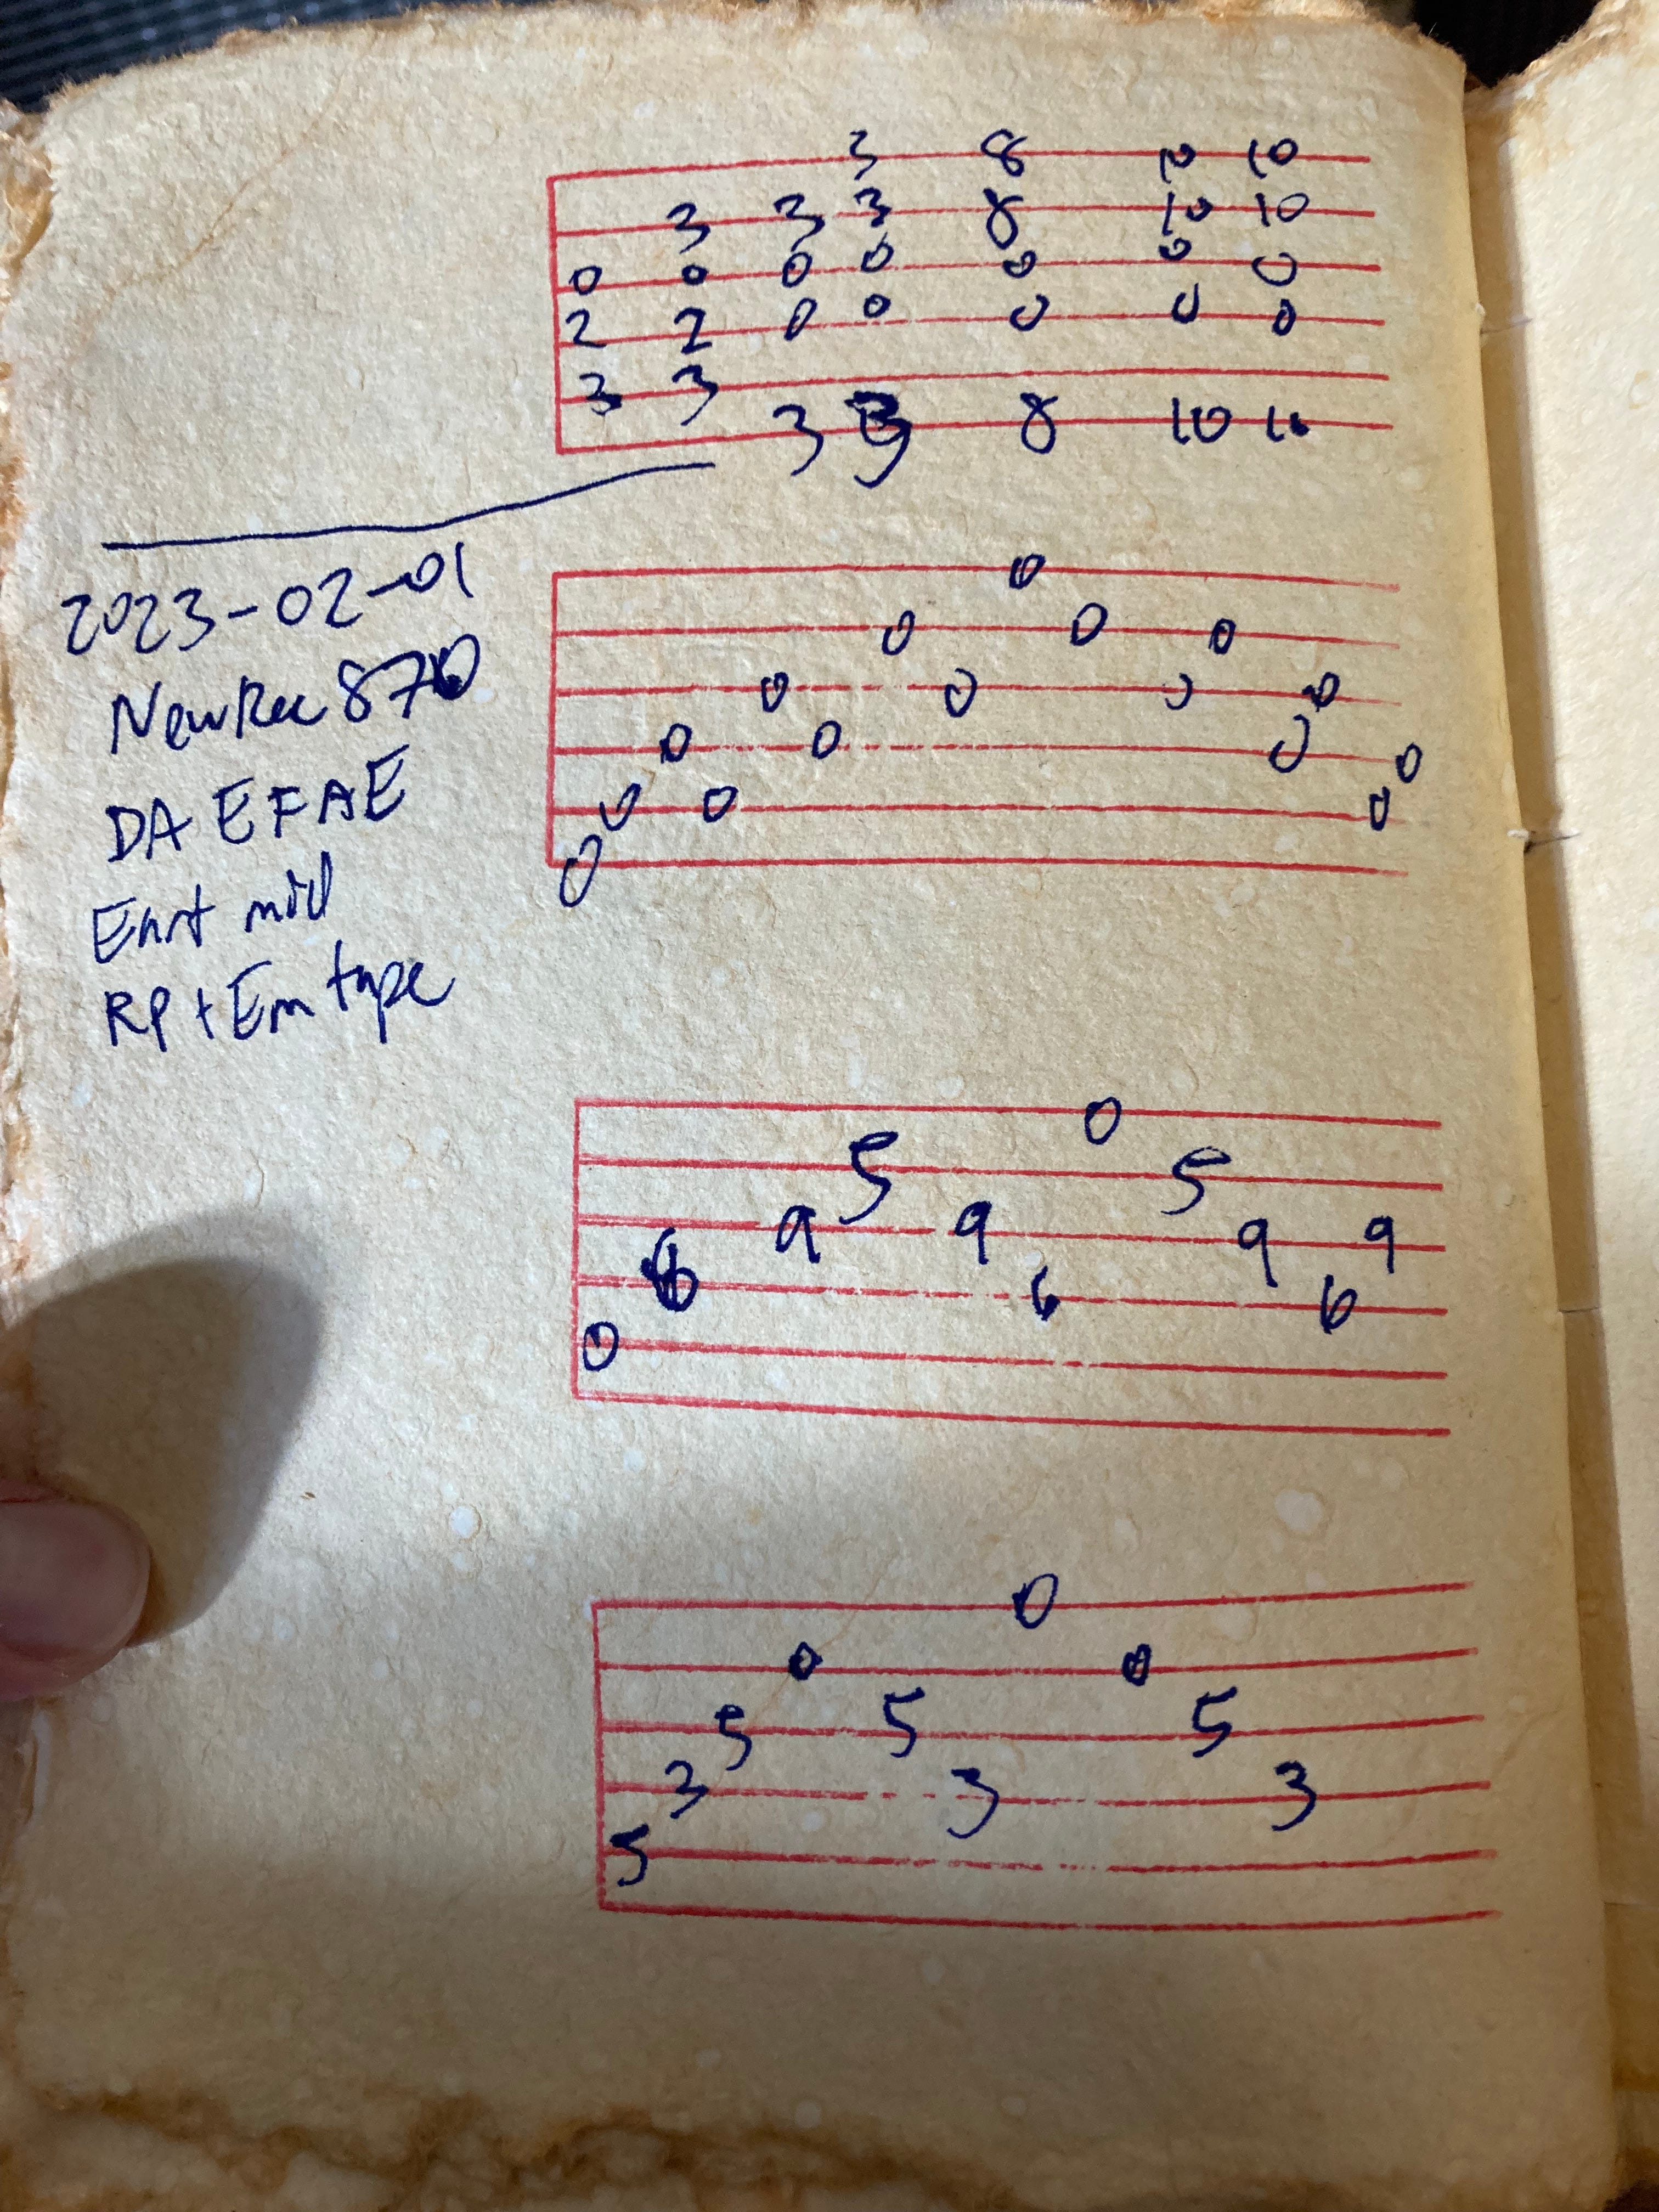 3 8 10 10
3 3 3 8 10 10
0 0 0 0 0 0 0
2 2 0 0 0 0 0
3 3
3 3 8 10 10
2023-02-01
NewRec 870
DA EFAE
mid
RP + Em tape
0
0 0 0
0 0 0 0
0 0 0 0
0 0 0
0
0
5 5
9 9 9 9
6 6 6
0
0
0 0
5 5 5
3 3 3
5